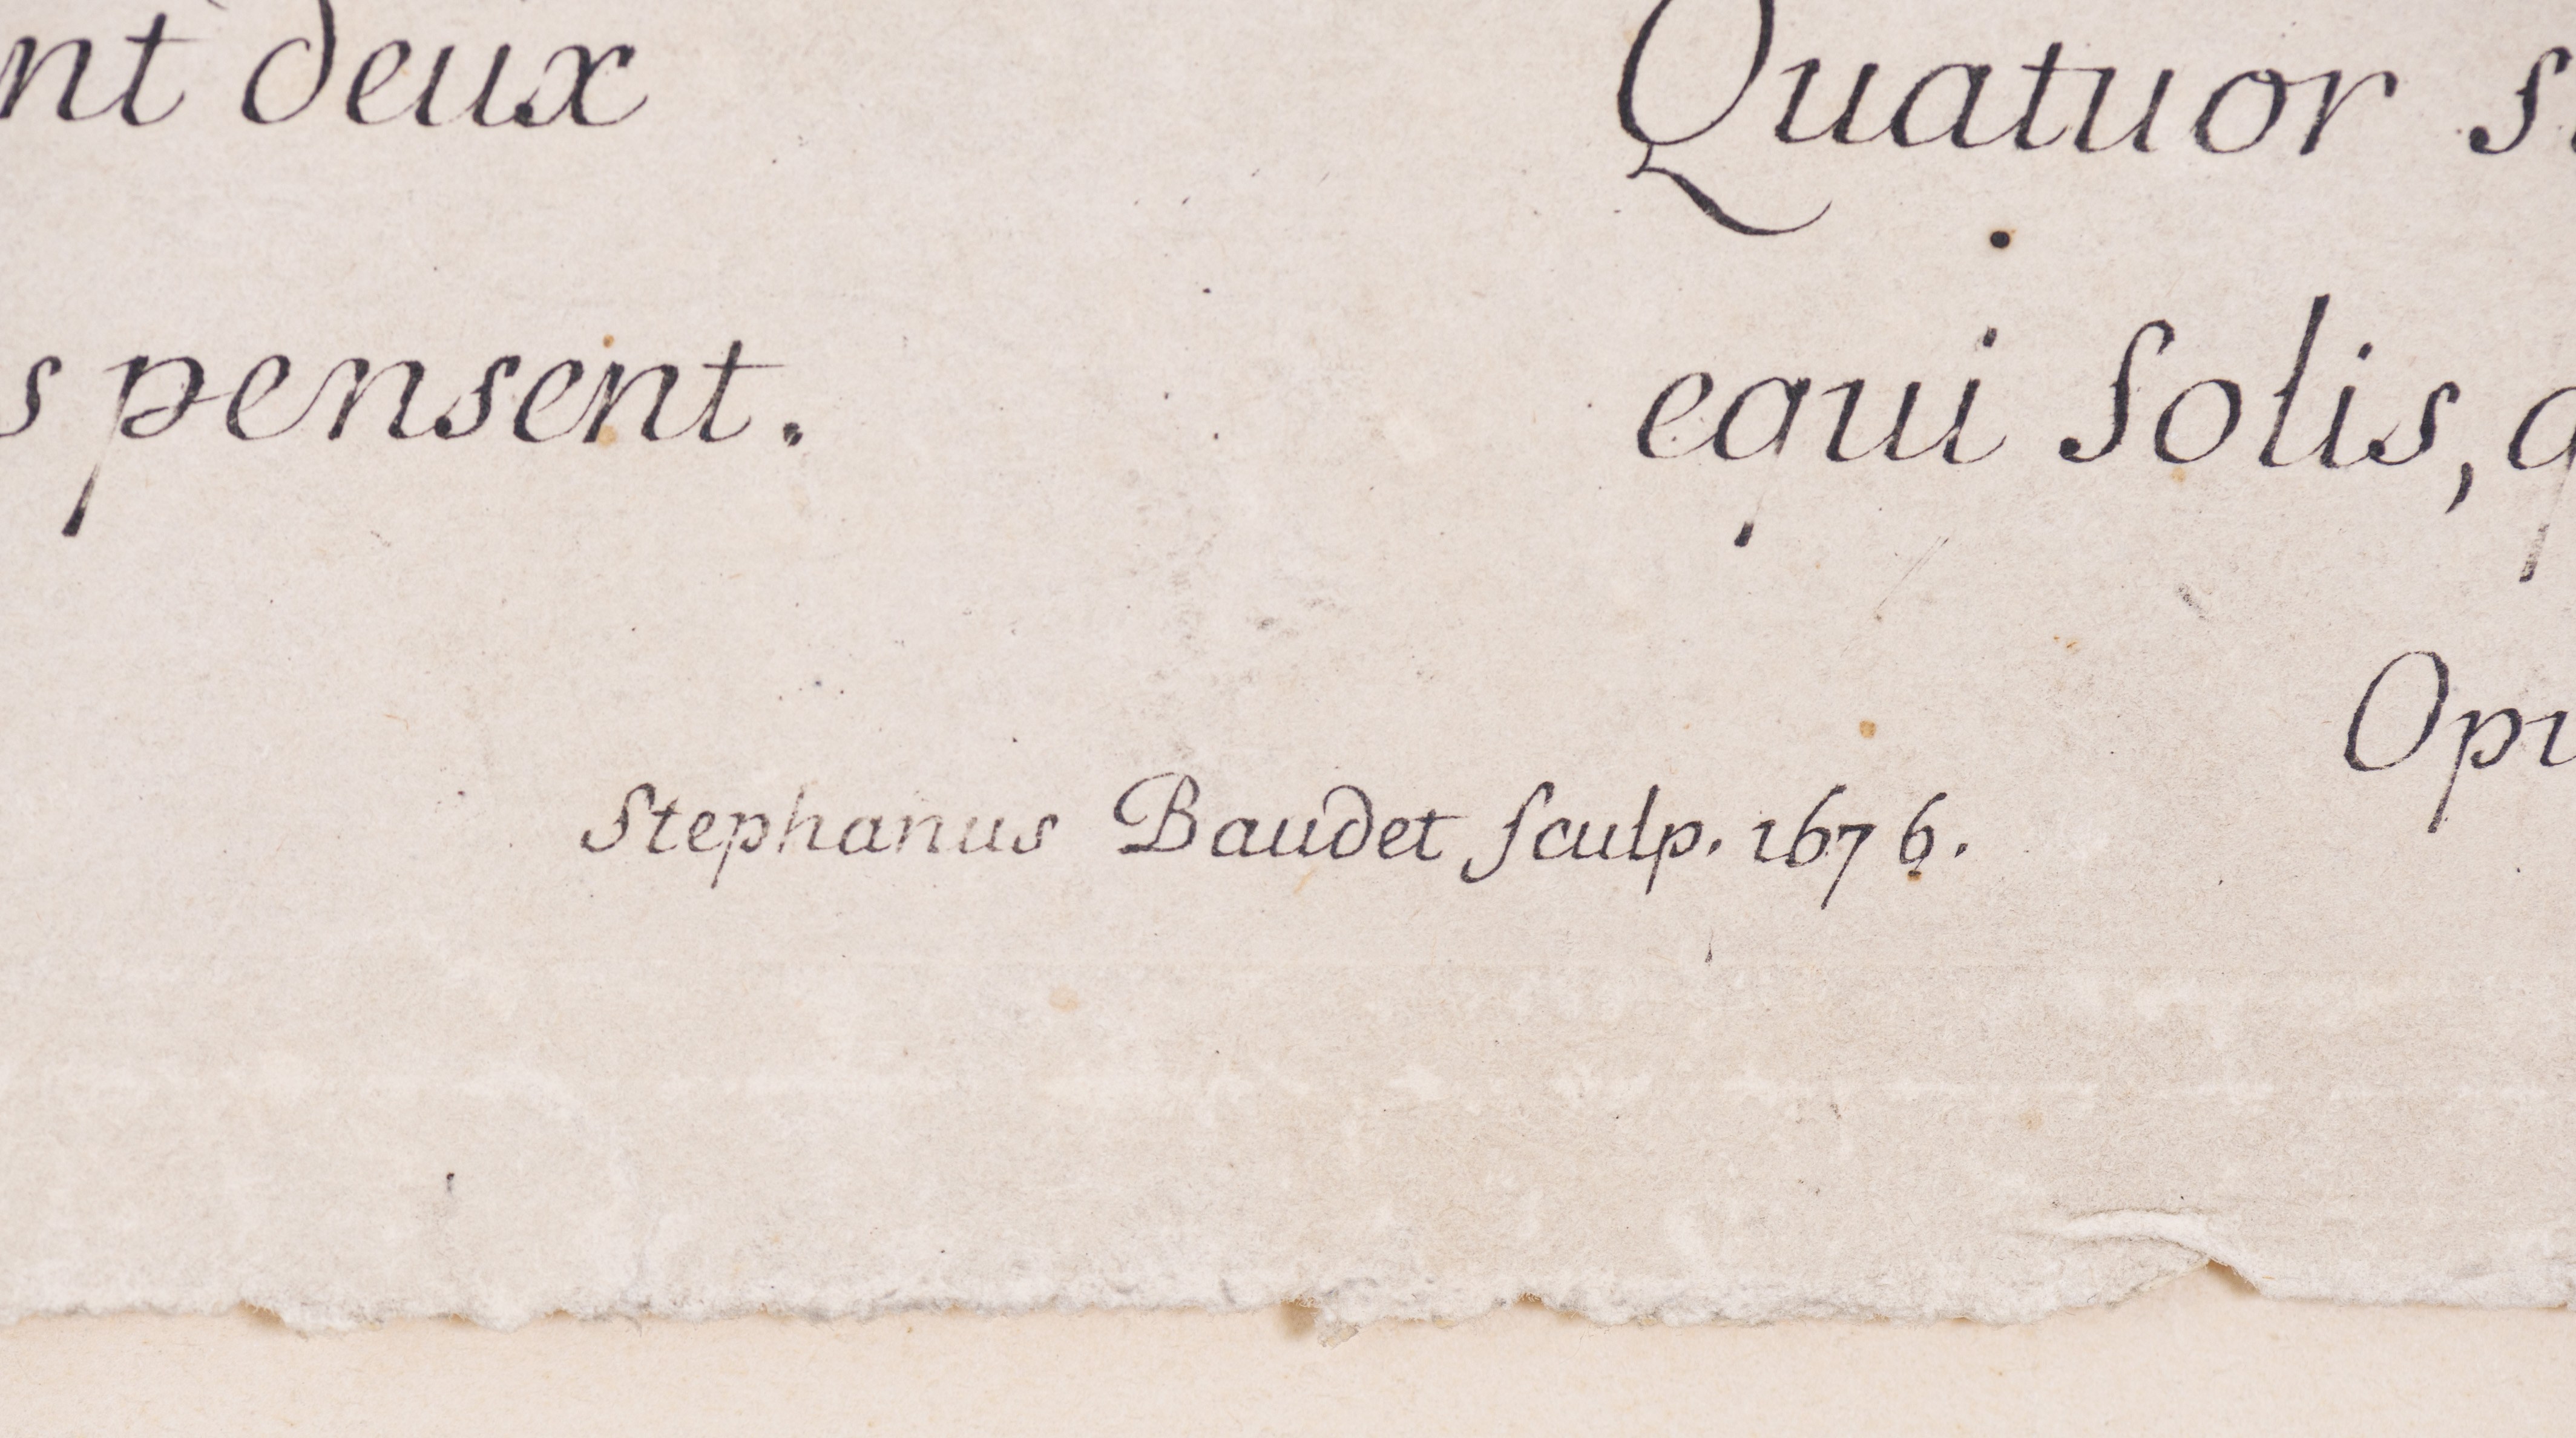 nt deux
s pensent.
Quatuor
equi Solis,
Stephanus Baudet sculp. 1676.